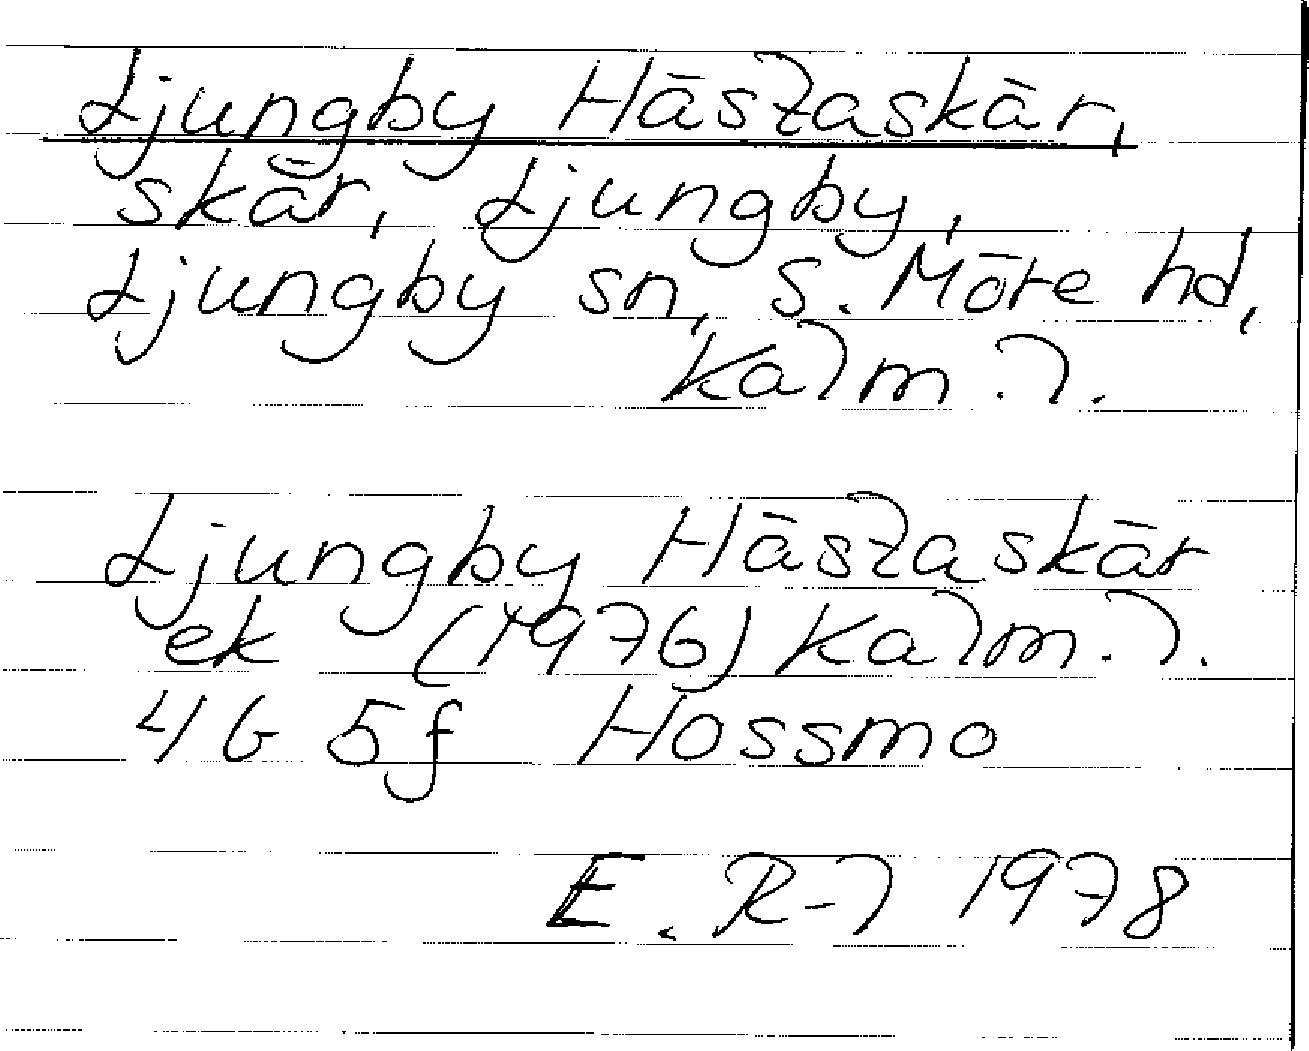 Ljungby Hästaskär,
skär, Ljungby,
Ljungby sn, S. Möre hd,
Kalm. l.
Ljungby Hästaskär
ek (1976) Kalm. l.
4G 5f Hossmo
E. R-l 1978